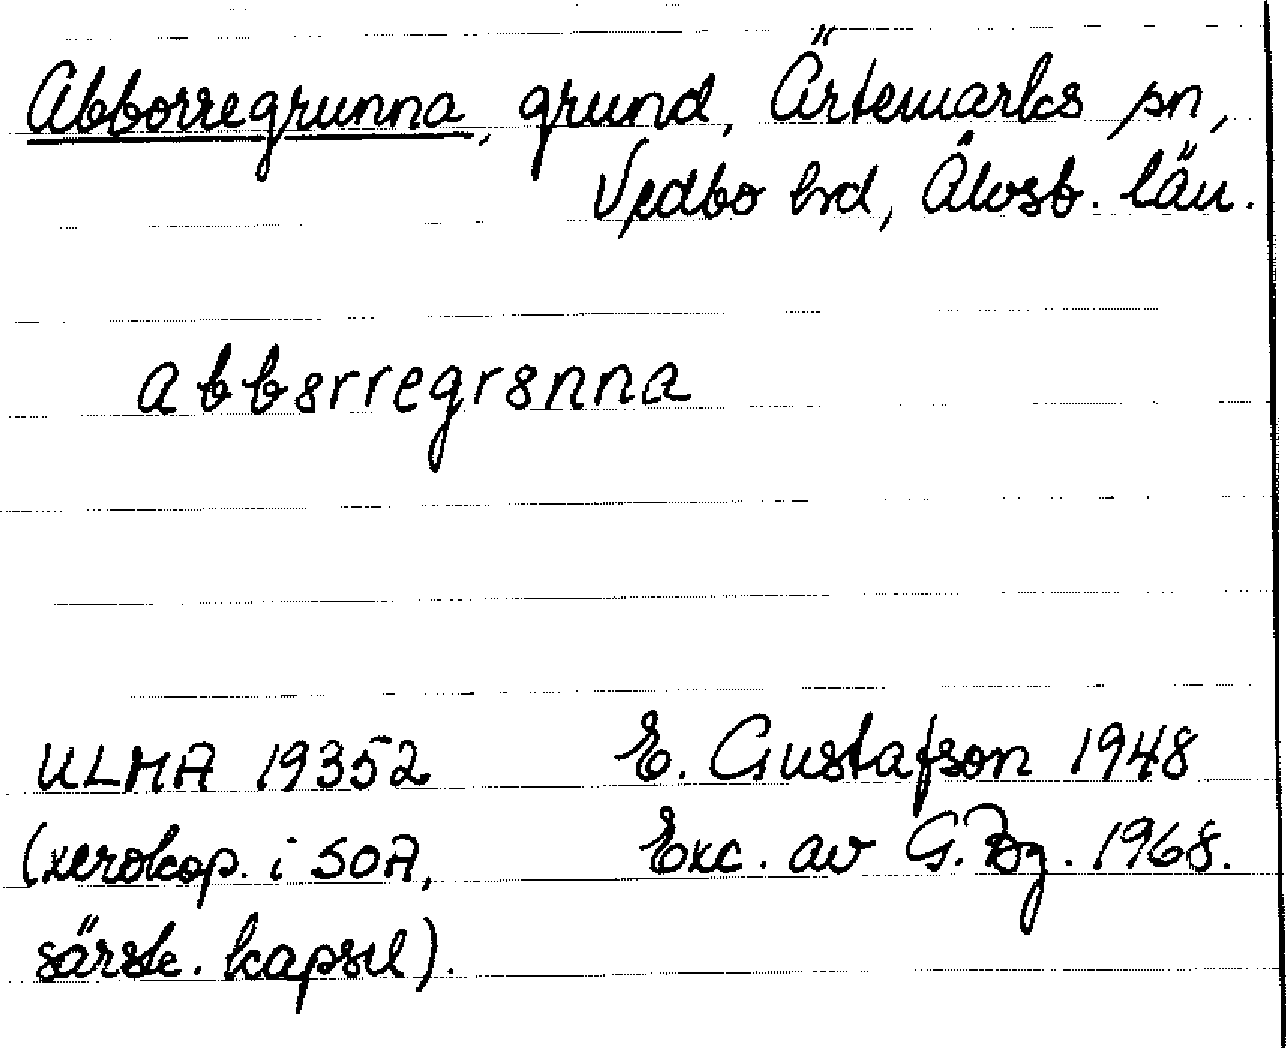 Abborregrunna, grund, Ärtemarks sn,
Vedbo hd, Älvsb. län.
abb8rregr8nna
ULMA 19352 E. Gustafson 1948
(xerokop. i SOA, Exc. av G. Bg. 1968.
särsk. kapsel).